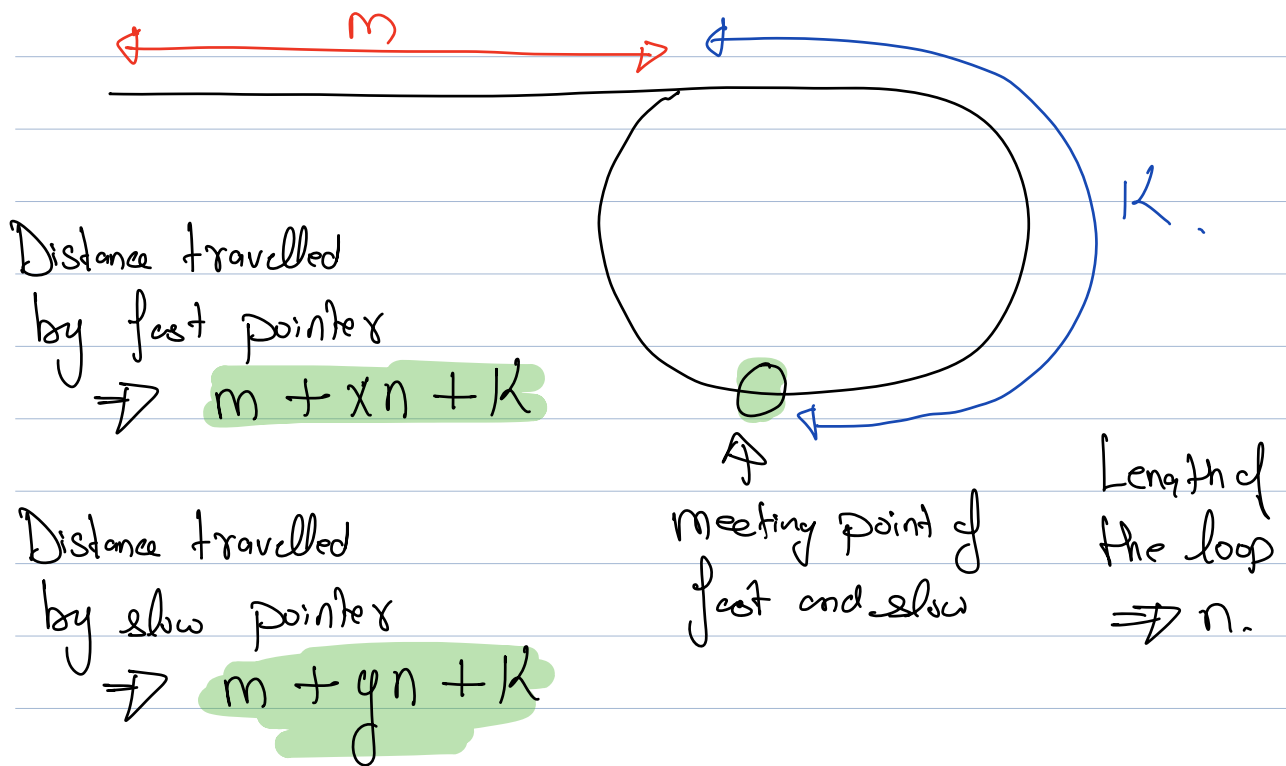 m
K.
Distance travelled
by fast pointer
⇒ m + xn + K
Distance travelled
by slow pointer
⇒ m + yn + K
meeting point of
fast and slow
Length of
the loop
⇒ n.